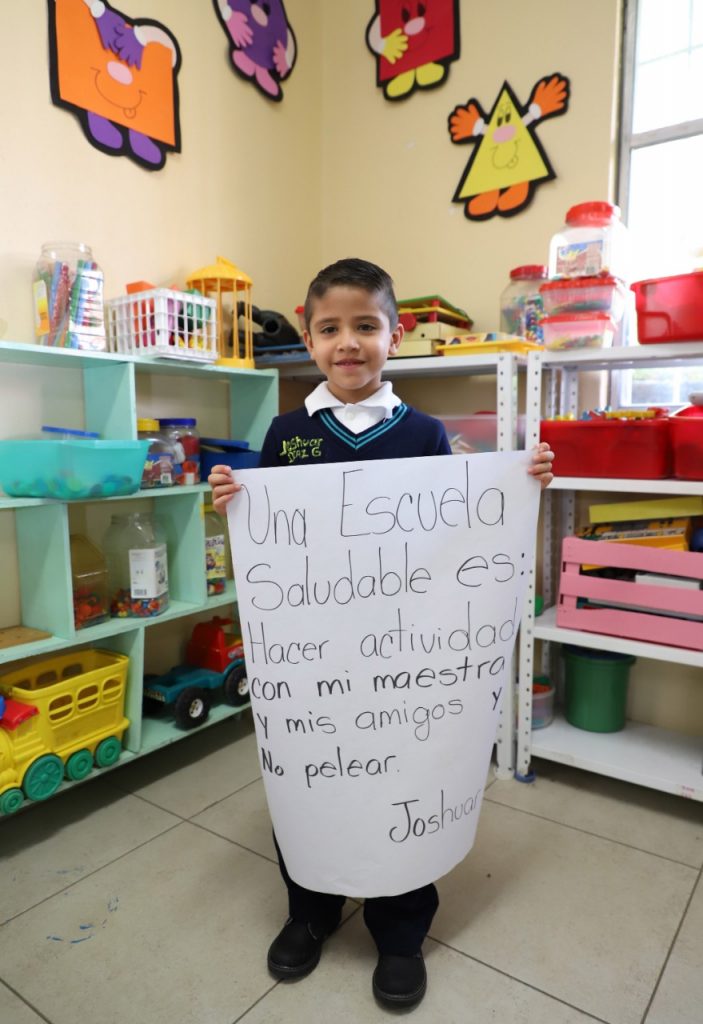 Joshuar
DIAZ G
Una Escuela
Saludable es:
Hacer actividad
con mi maestra
y mis amigos y
No pelear.
Joshuar